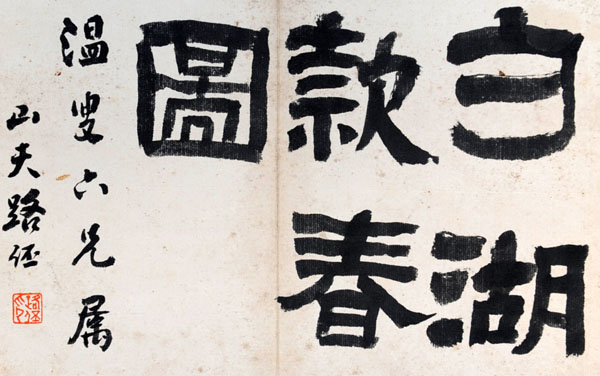 白湖
款春
圖
温叟六兄属
山夫路伾